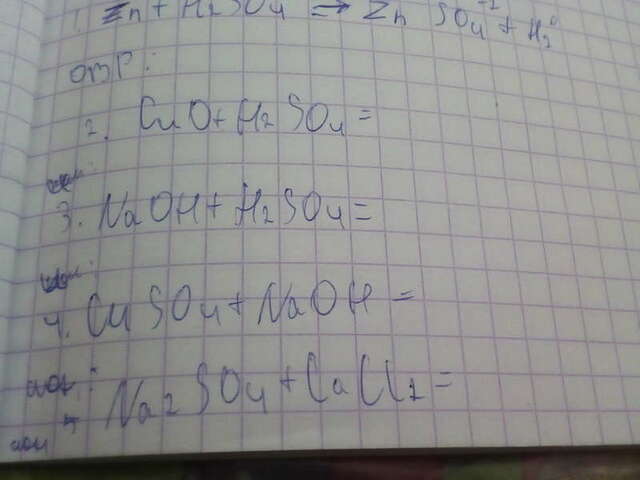 Zn + H2SO4 → Zn SO4⁻² + H2⁰
ОВР:
2. CuO + H2SO4 =
3. NaOH + H2SO4 =
4. CuSO4 + NaOH =
Na2SO4 + CaCl2 =